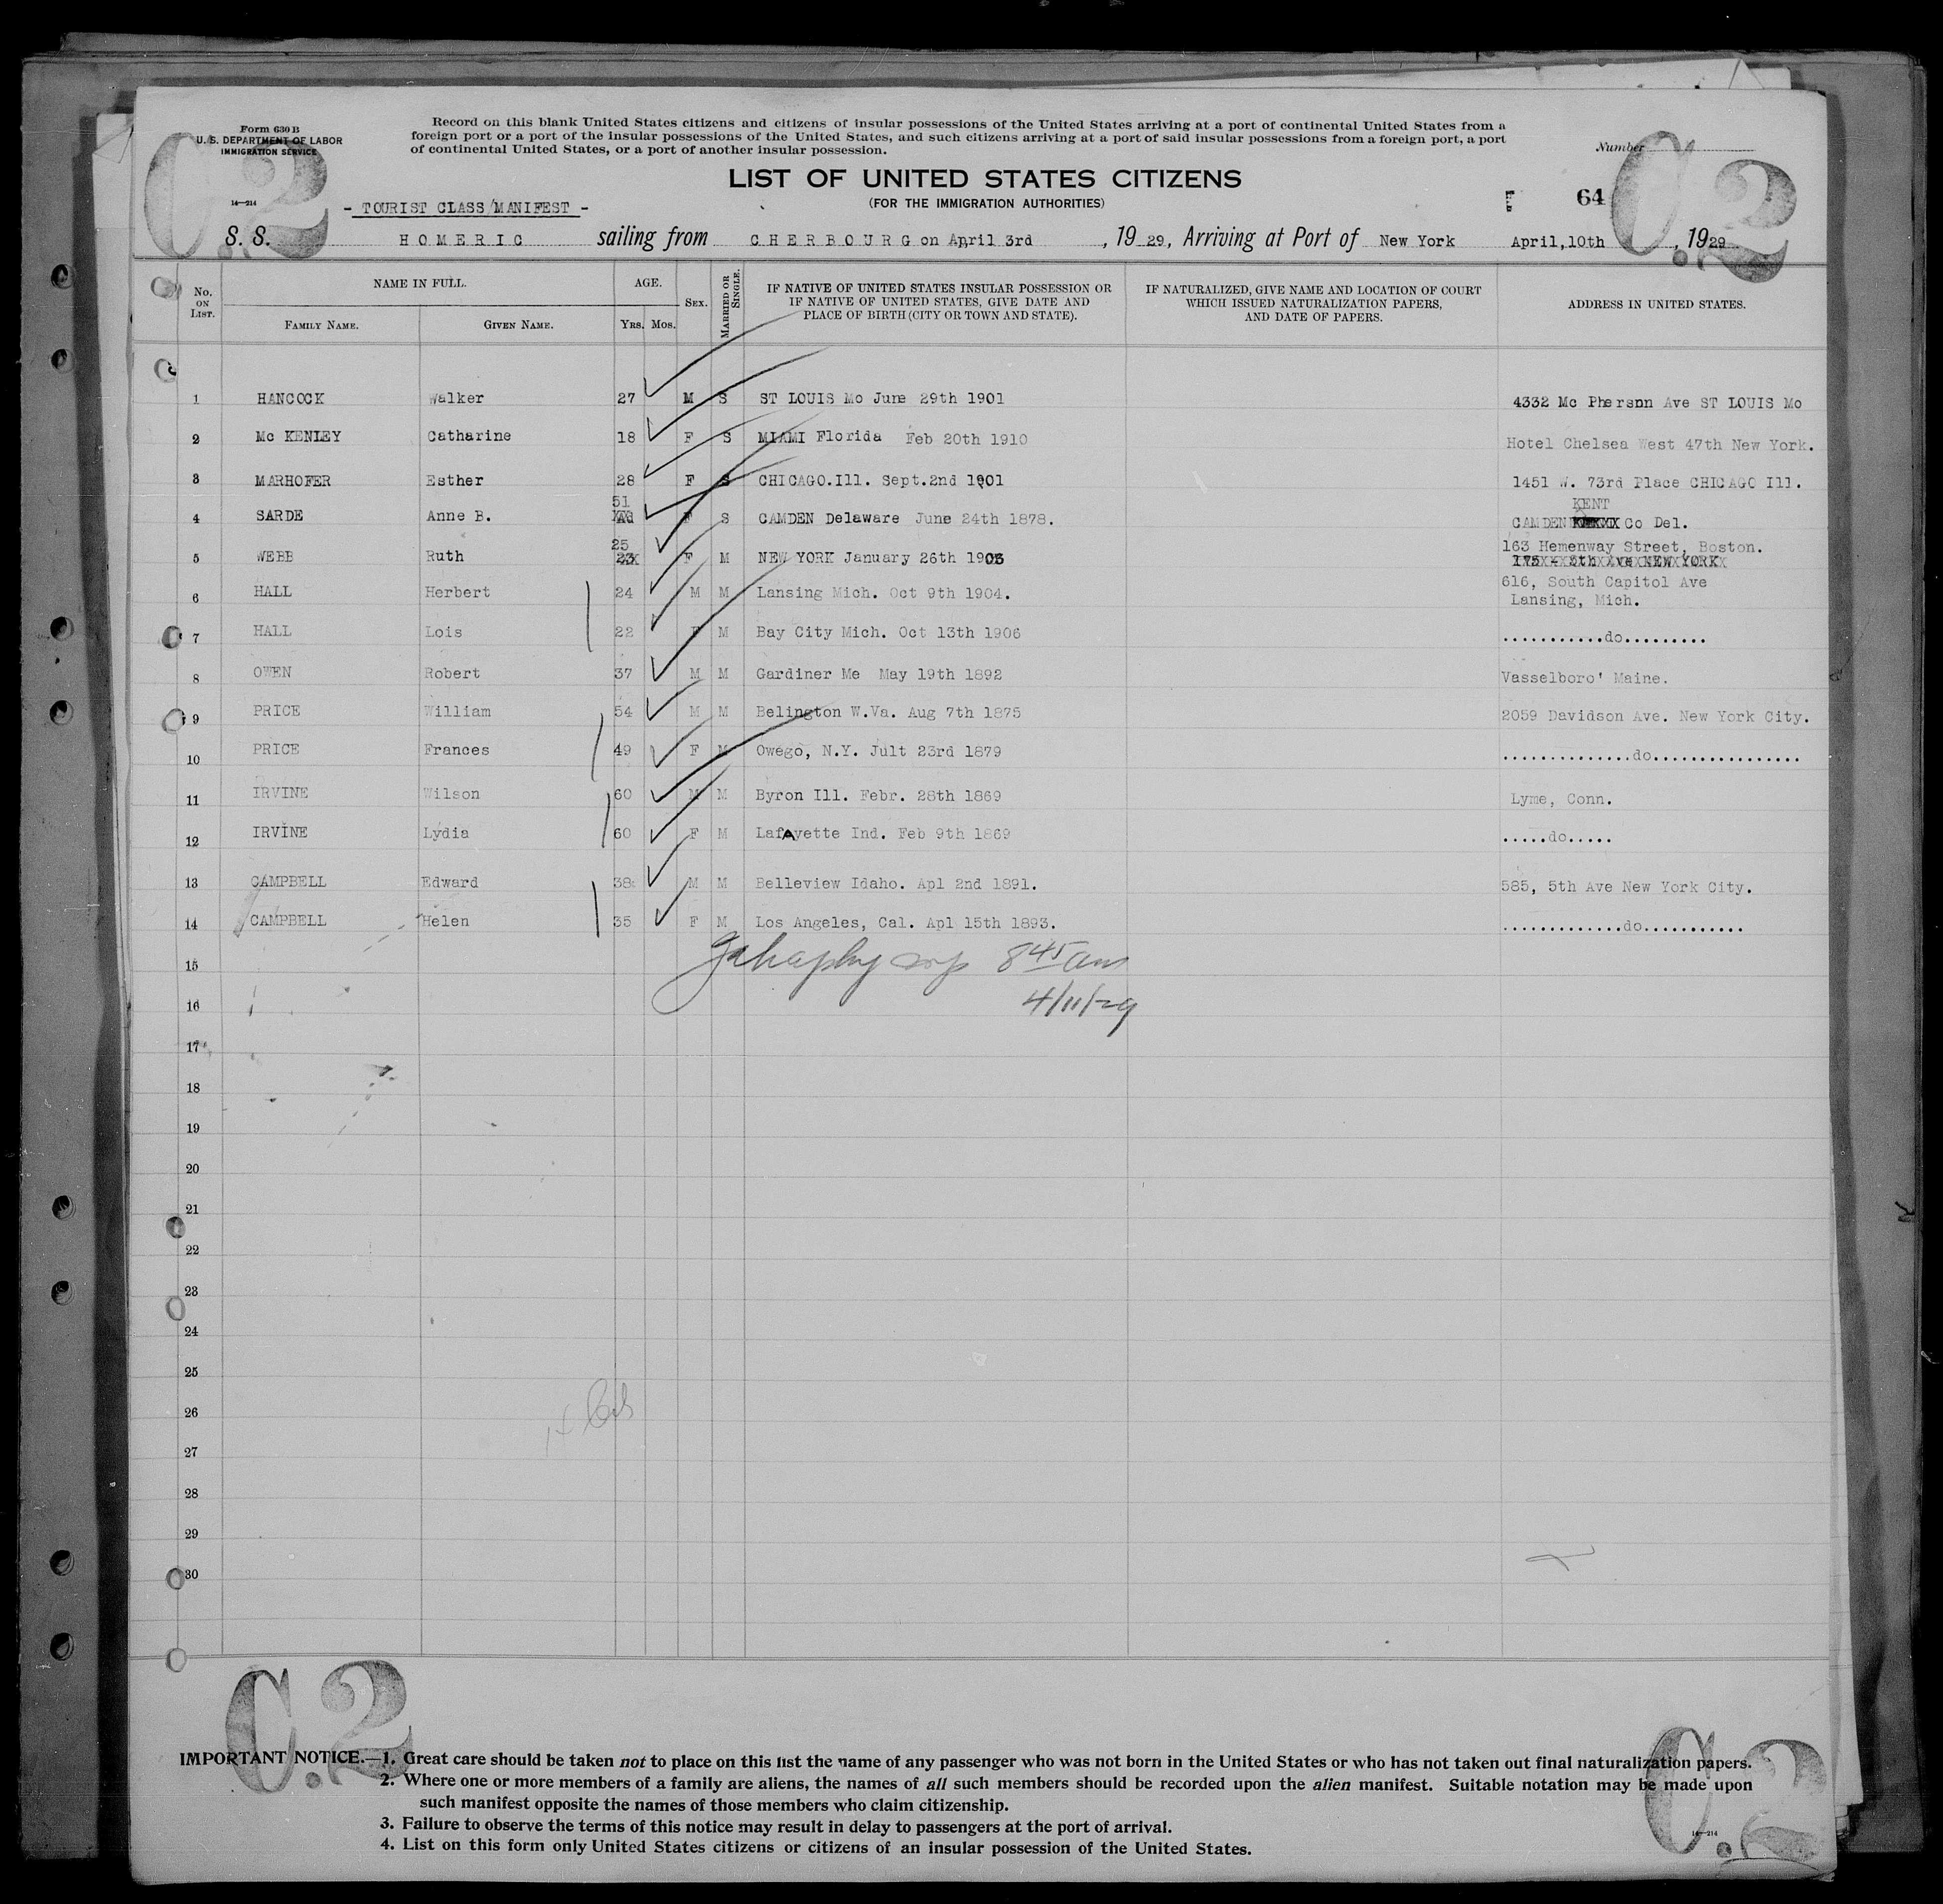 Form 630 B
U. S. DEPARTMENT OF LABOR
IMMIGRATION SERVICE
14—214
Record on this blank United States citizens and citizens of insular possessions of the United States arriving at a port of continental United States from a
foreign port or a port of the insular possessions of the United States, and such citizens arriving at a port of said insular possessions from a foreign port, a port
of continental United States, or a port of another insular possession.
Number
C.2
C.2
LIST OF UNITED STATES CITIZENS
(FOR THE IMMIGRATION AUTHORITIES)
64
- TOURIST CLASS/MANIFEST -
S. S. HOMERIC sailing from CHERBOURG on April 3rd, 19 29, Arriving at Port of New York April,10th, 1929
No. ON LIST.
NAME IN FULL.
FAMILY NAME. GIVEN NAME.
AGE.
YRS. MOS.
SEX.
MARRIED OR SINGLE.
IF NATIVE OF UNITED STATES INSULAR POSSESSION OR
IF NATIVE OF UNITED STATES, GIVE DATE AND
PLACE OF BIRTH (CITY OR TOWN AND STATE).
IF NATURALIZED, GIVE NAME AND LOCATION OF COURT
WHICH ISSUED NATURALIZATION PAPERS,
AND DATE OF PAPERS.
ADDRESS IN UNITED STATES.
1 HANCOCK Walker 27 M S ST LOUIS Mo June 29th 1901 4332 Mc Phersnn Ave ST LOUIS Mo
2 Mc KENLEY Catharine 18 F S MIAMI Florida Feb 20th 1910 Hotel Chelsea West 47th New York.
3 MARHOFER Esther 28 F S CHICAGO.Ill. Sept.2nd 1901 1451 W. 73rd Place CHICAGO Ill.
51 KENT
4 SARDE Anne B. F S CAMDEN Delaware June 24th 1878. CAMDEN Co Del.
25 163 Hemenway Street, Boston.
5 WEBB Ruth 23 F M NEW YORK January 26th 1903 175 - 5th Ave NEW YORK
6 HALL Herbert 24 M M Lansing Mich. Oct 9th 1904. 616, South Capitol Ave
Lansing, Mich.
7 HALL Lois 22 F M Bay City Mich. Oct 13th 1906 ...........do.........
8 OWEN Robert 37 M M Gardiner Me May 19th 1892 Vasselboro' Maine.
9 PRICE William 54 M M Belington W.Va. Aug 7th 1875 2059 Davidson Ave. New York City.
10 PRICE Frances 49 F M Owego, N.Y. Jult 23rd 1879 ..............do................
11 IRVINE Wilson 60 M M Byron Ill. Febr. 28th 1869 Lyme, Conn.
12 IRVINE Lydia 60 F M LafAyette Ind. Feb 9th 1869 .....do.....
13 CAMPBELL Edward 38 M M Belleview Idaho. Apl 2nd 1891. 585, 5th Ave New York City.
14 CAMPBELL Helen 35 F M Los Angeles, Cal. Apl 15th 1893. .............do...........
15 8 45 am
16 4/11/29
17
18
19
20
21
22
23
24
25
26
27
28
29
30
C.2
C.2
IMPORTANT NOTICE.—1. Great care should be taken not to place on this list the name of any passenger who was not born in the United States or who has not taken out final naturalization papers.
2. Where one or more members of a family are aliens, the names of all such members should be recorded upon the alien manifest. Suitable notation may be made upon
such manifest opposite the names of those members who claim citizenship.
3. Failure to observe the terms of this notice may result in delay to passengers at the port of arrival.
4. List on this form only United States citizens or citizens of an insular possession of the United States.
14—214